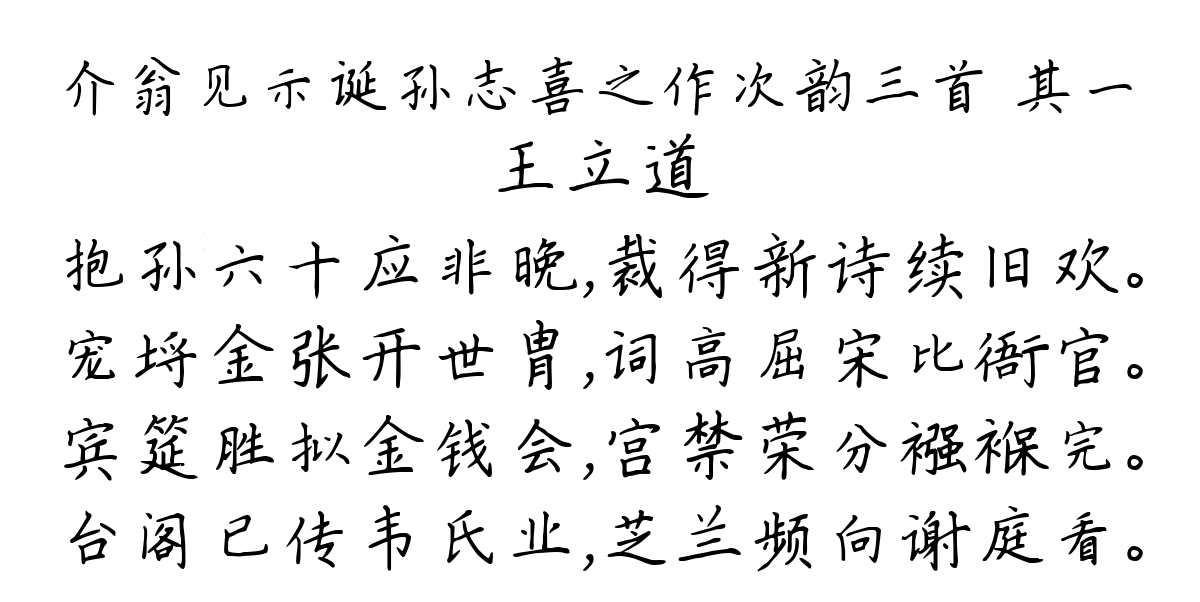 介翁见示诞孙志喜之作次韵三首 其一
王立道
抱孙六十应非晚,裁得新诗续旧欢。
宠埒金张开世胄,词高屈宋比衙官。
宾筵胜拟金钱会,宫禁荣分襁褓完。
台阁已传韦氏业,芝兰频向谢庭看。